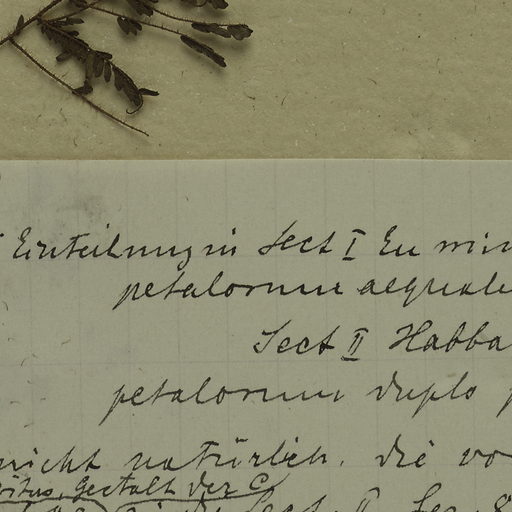 Einteilung in Sect I Eu min
petalorum aequale
Sect II Habba
petalorum duplo
nicht natürlich. die vo
Gestalt der
Sect. II